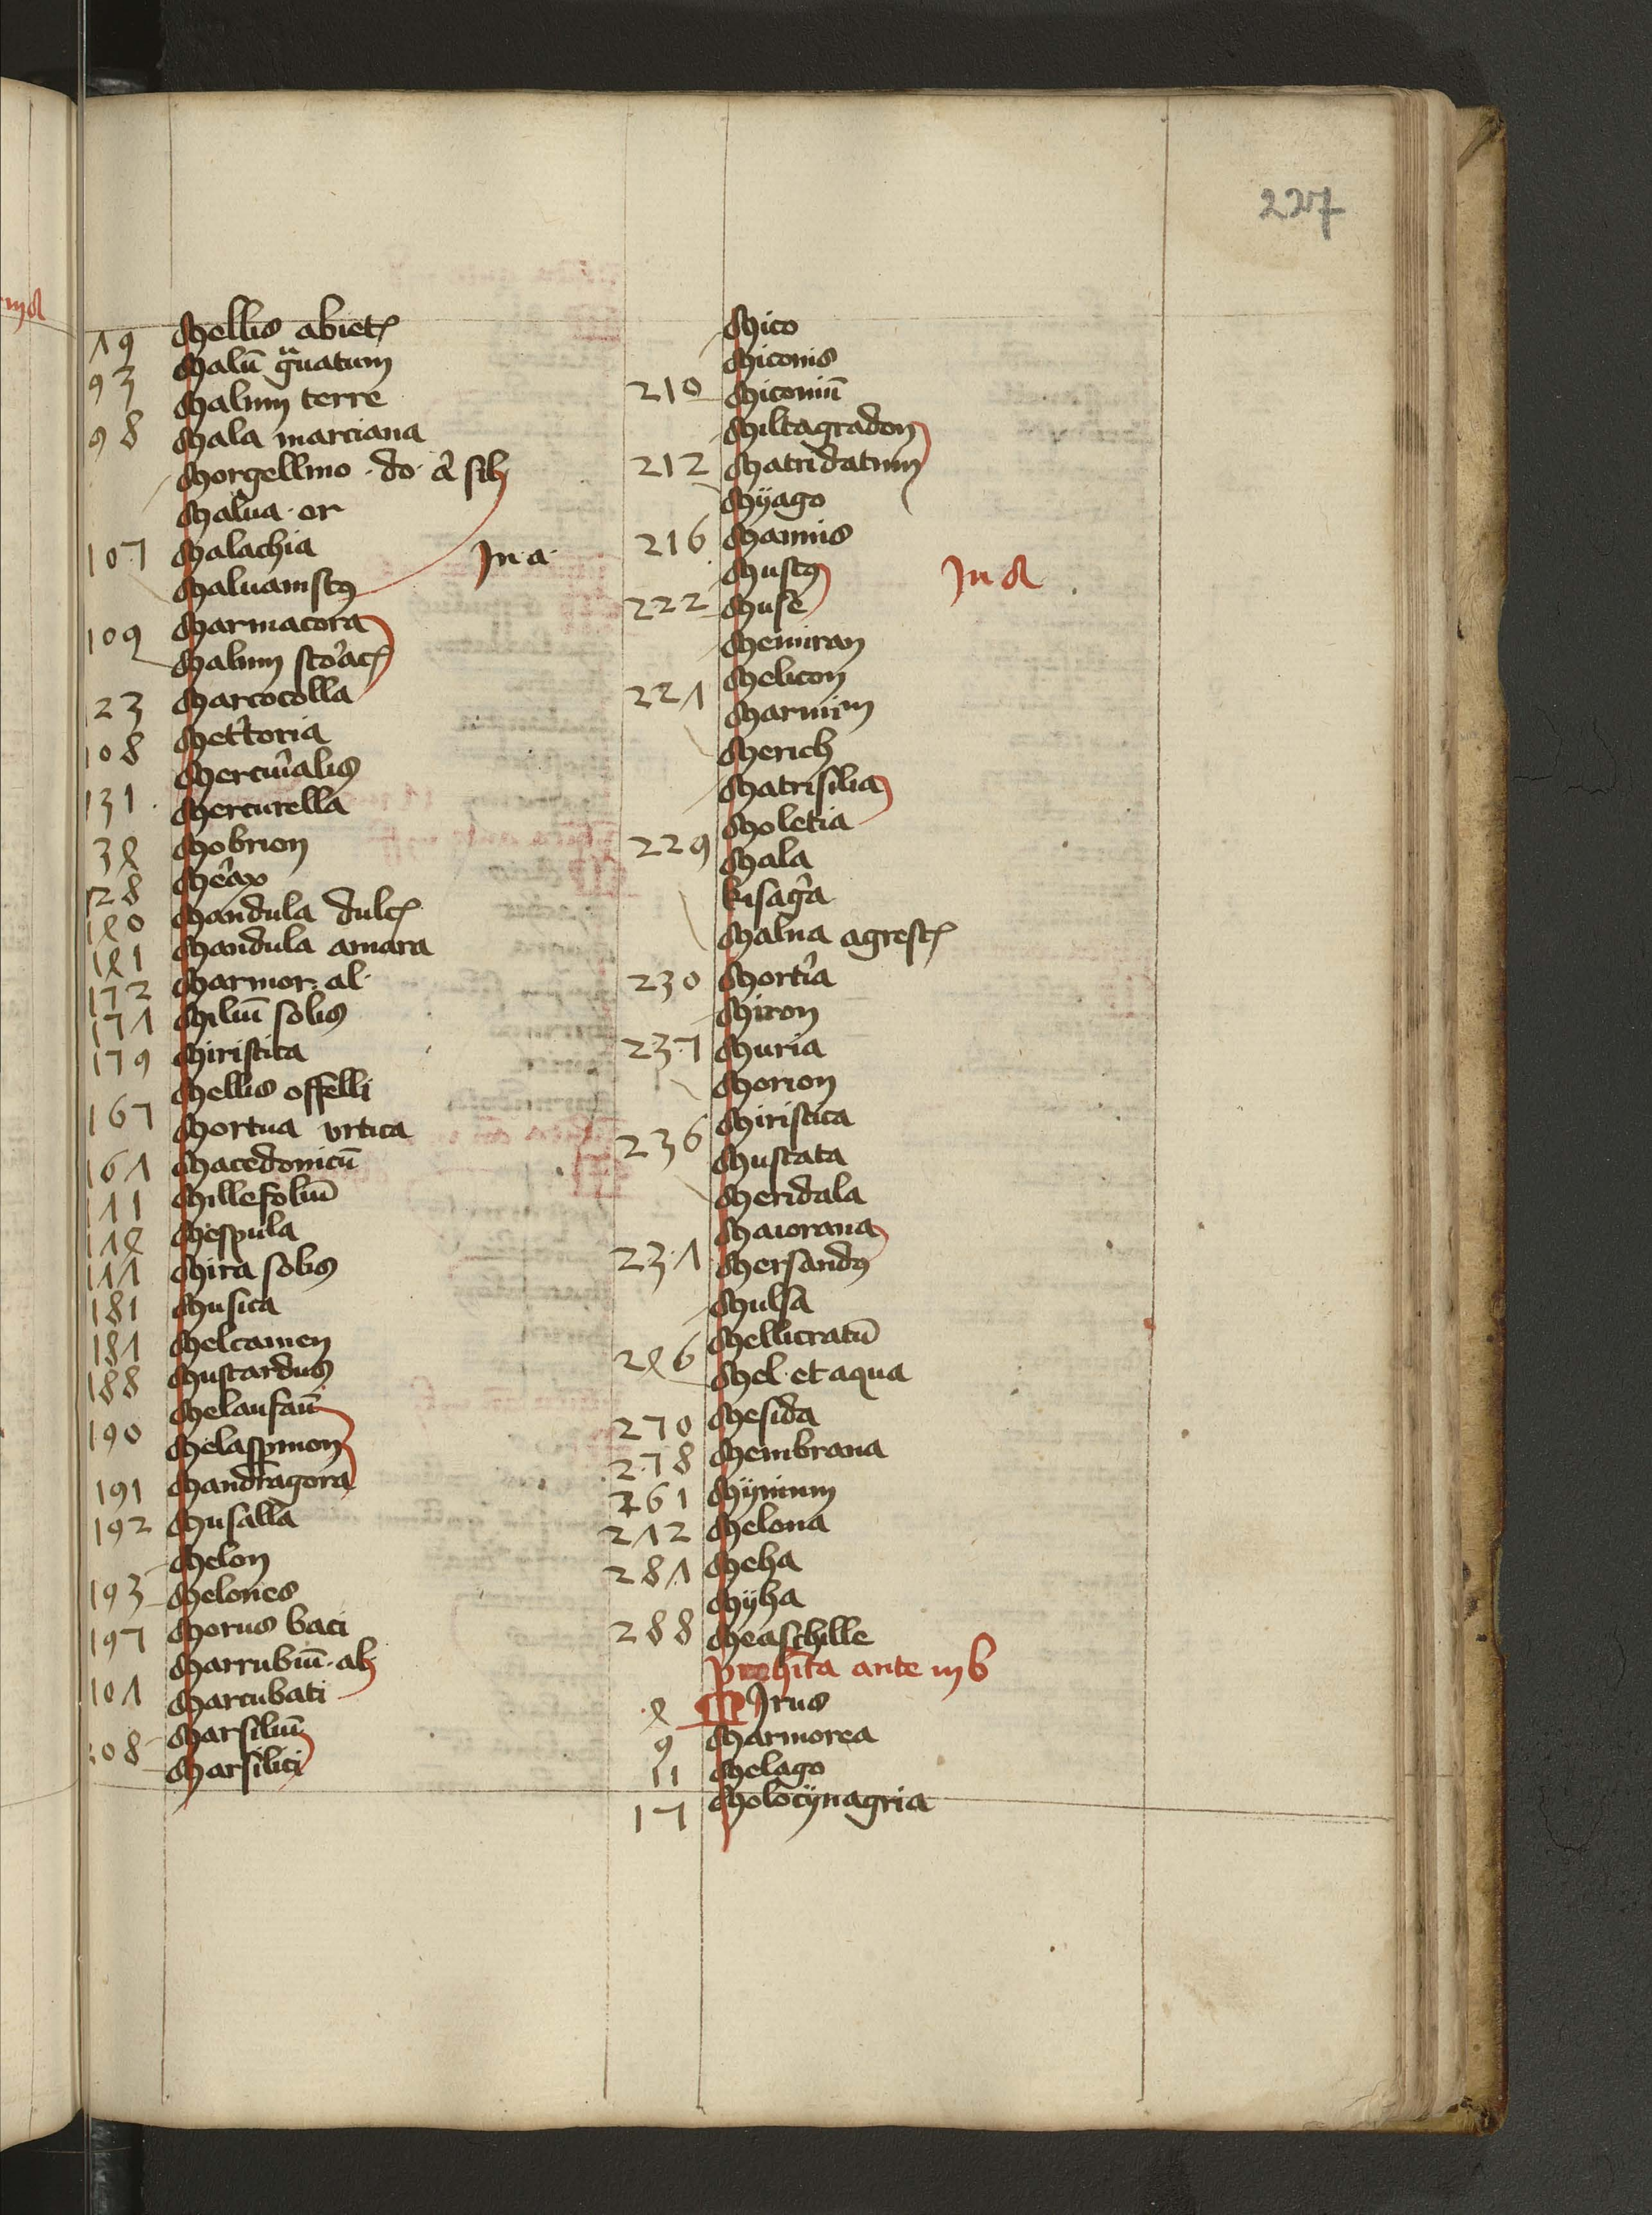 227
19 Mellis abietꝭ
Malū gͣnatum
93
Malum terre
98 Mala marciana
Morgellino · do · a᷑ silꝫ
Malua · or
107 Malachia
In · a ·
Maluauiscꝰ
109 Marmacora
Malum sto᷑acꝭ
23 Marcocolla
108 Met᷑toria
Mercu᷑alis
131 Mercurella
34 Mobrion
128 Me᷑ax
140 Mandula dulcꝭ
141 Mandula amara
172 Marmor · al ·
171 Miliū solis
179 Miristica
Mellis offelli
167 Mortua vrtica
161 Macedonicū
111 Millefoliū
114 Mespula
111 Mira solis
181 Musica
181 Melcamen
188 Mustardus
Melanfaū
190 Melaspimon
191 Mandragora
192 Musalla
Melon
193 Melones
197 Morus baci
Marrubiū · alꝫ
101 Marcubati
Marsiliū
108 Marsilici
Mico
Miconis
210 Miconiū
Miltagradon
212 Matridatum
Mÿago
216 Mannis
Muscꝰ
In A
222 Muse
Memiran
221 Melicon
Marmim
Merich
Matrisilia
Moletia
229 Mala
kisag᷑a
Malua agrestꝭ
230 Morti᷑a
Miron
237 Muria
Morion
Miristica
236 Muscata
Meridala
Maiorana
231 Mersandꝰ
Mulsa
Mellicratū
246 Mel · et aqua
270 Mesida
278 Membrana
261 Mÿnium
212 Melona
281 Meha
Mÿha
288 Measchille
ante in b
4 Mirus
9 Marmorea
11 Melago
17 Molocÿnagria